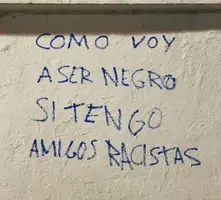 COMO VOY
A SER NEGRO
SI TENGO
AMIGOS RACISTAS